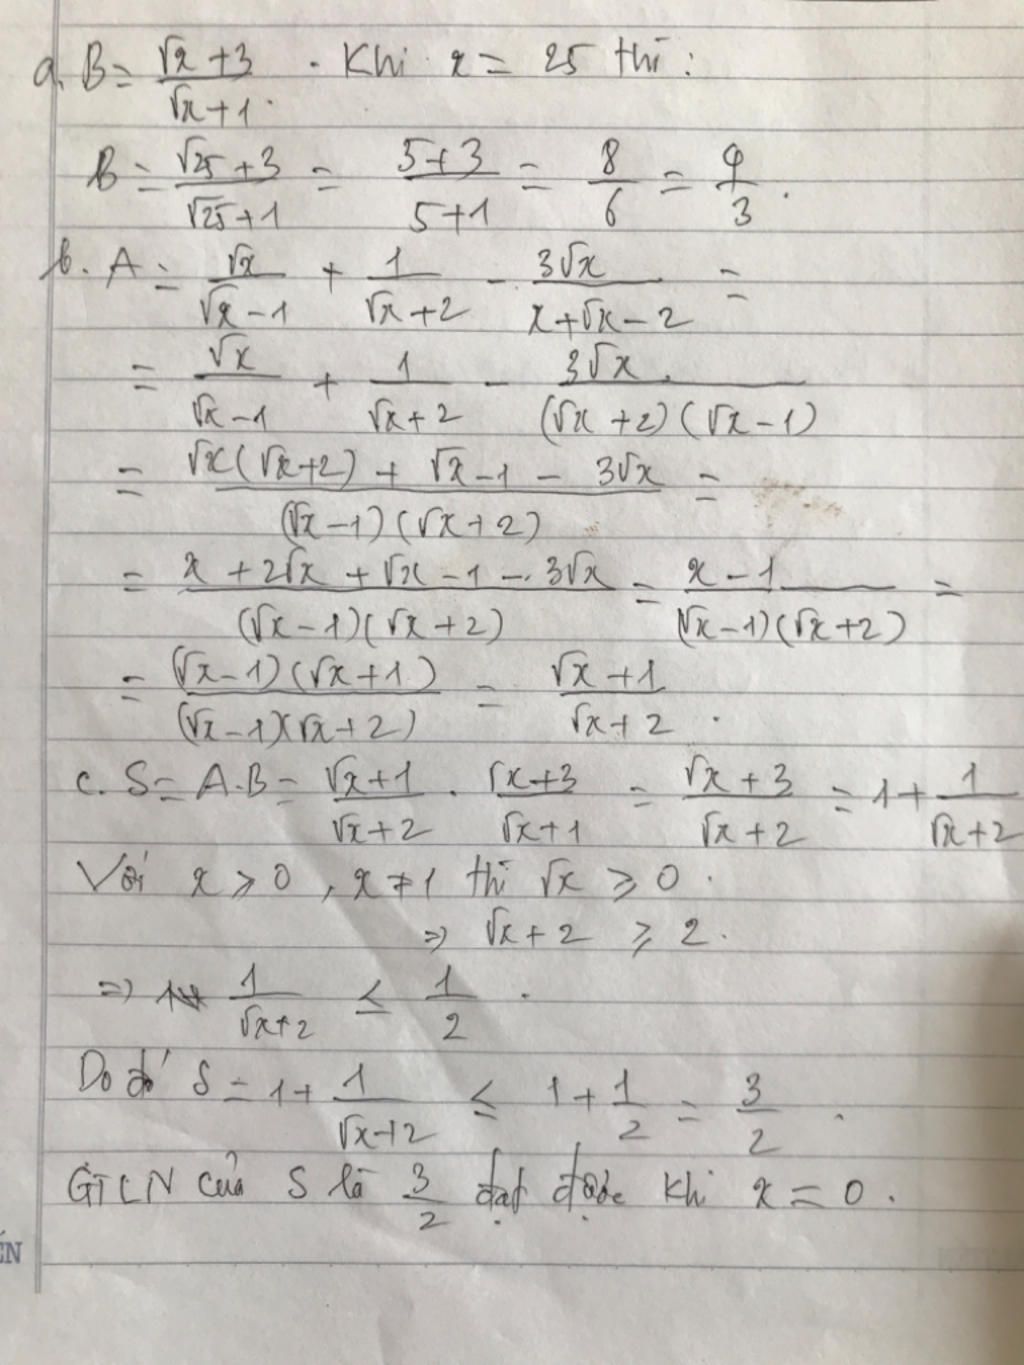 a. B = (√x + 3)/(√x + 1) . Khi x = 25 thì :
B = (√25 + 3)/(√25 + 1) = (5+3)/(5+1) = 8/6 = 4/3 .
b. A = √x/(√x - 1) + 1/(√x + 2) - 3√x/(x + √x - 2) =
= √x/(√x - 1) + 1/(√x + 2) - 3√x/((√x + 2)(√x - 1))
= (√x(√x + 2) + √x - 1 - 3√x)/((√x - 1)(√x + 2)) =
= (x + 2√x + √x - 1 - 3√x)/((√x - 1)(√x + 2)) = (x - 1)/((√x - 1)(√x + 2)) =
= ((√x - 1)(√x + 1))/((√x - 1)(√x + 2)) = (√x + 1)/(√x + 2) .
c. S = A.B = (√x + 1)/(√x + 2) . (√x + 3)/(√x + 1) = (√x + 3)/(√x + 2) = 1 + 1/(√x + 2)
Với x ≥ 0 , x ≠ 1 thì √x ≥ 0 .
⇒ √x + 2 ≥ 2 .
⇒ 1/(√x + 2) ≤ 1/2 .
Do đó S = 1 + 1/(√x + 2) ≤ 1 + 1/2 = 3/2 .
GTLN của S là 3/2 đạt được khi x = 0 .